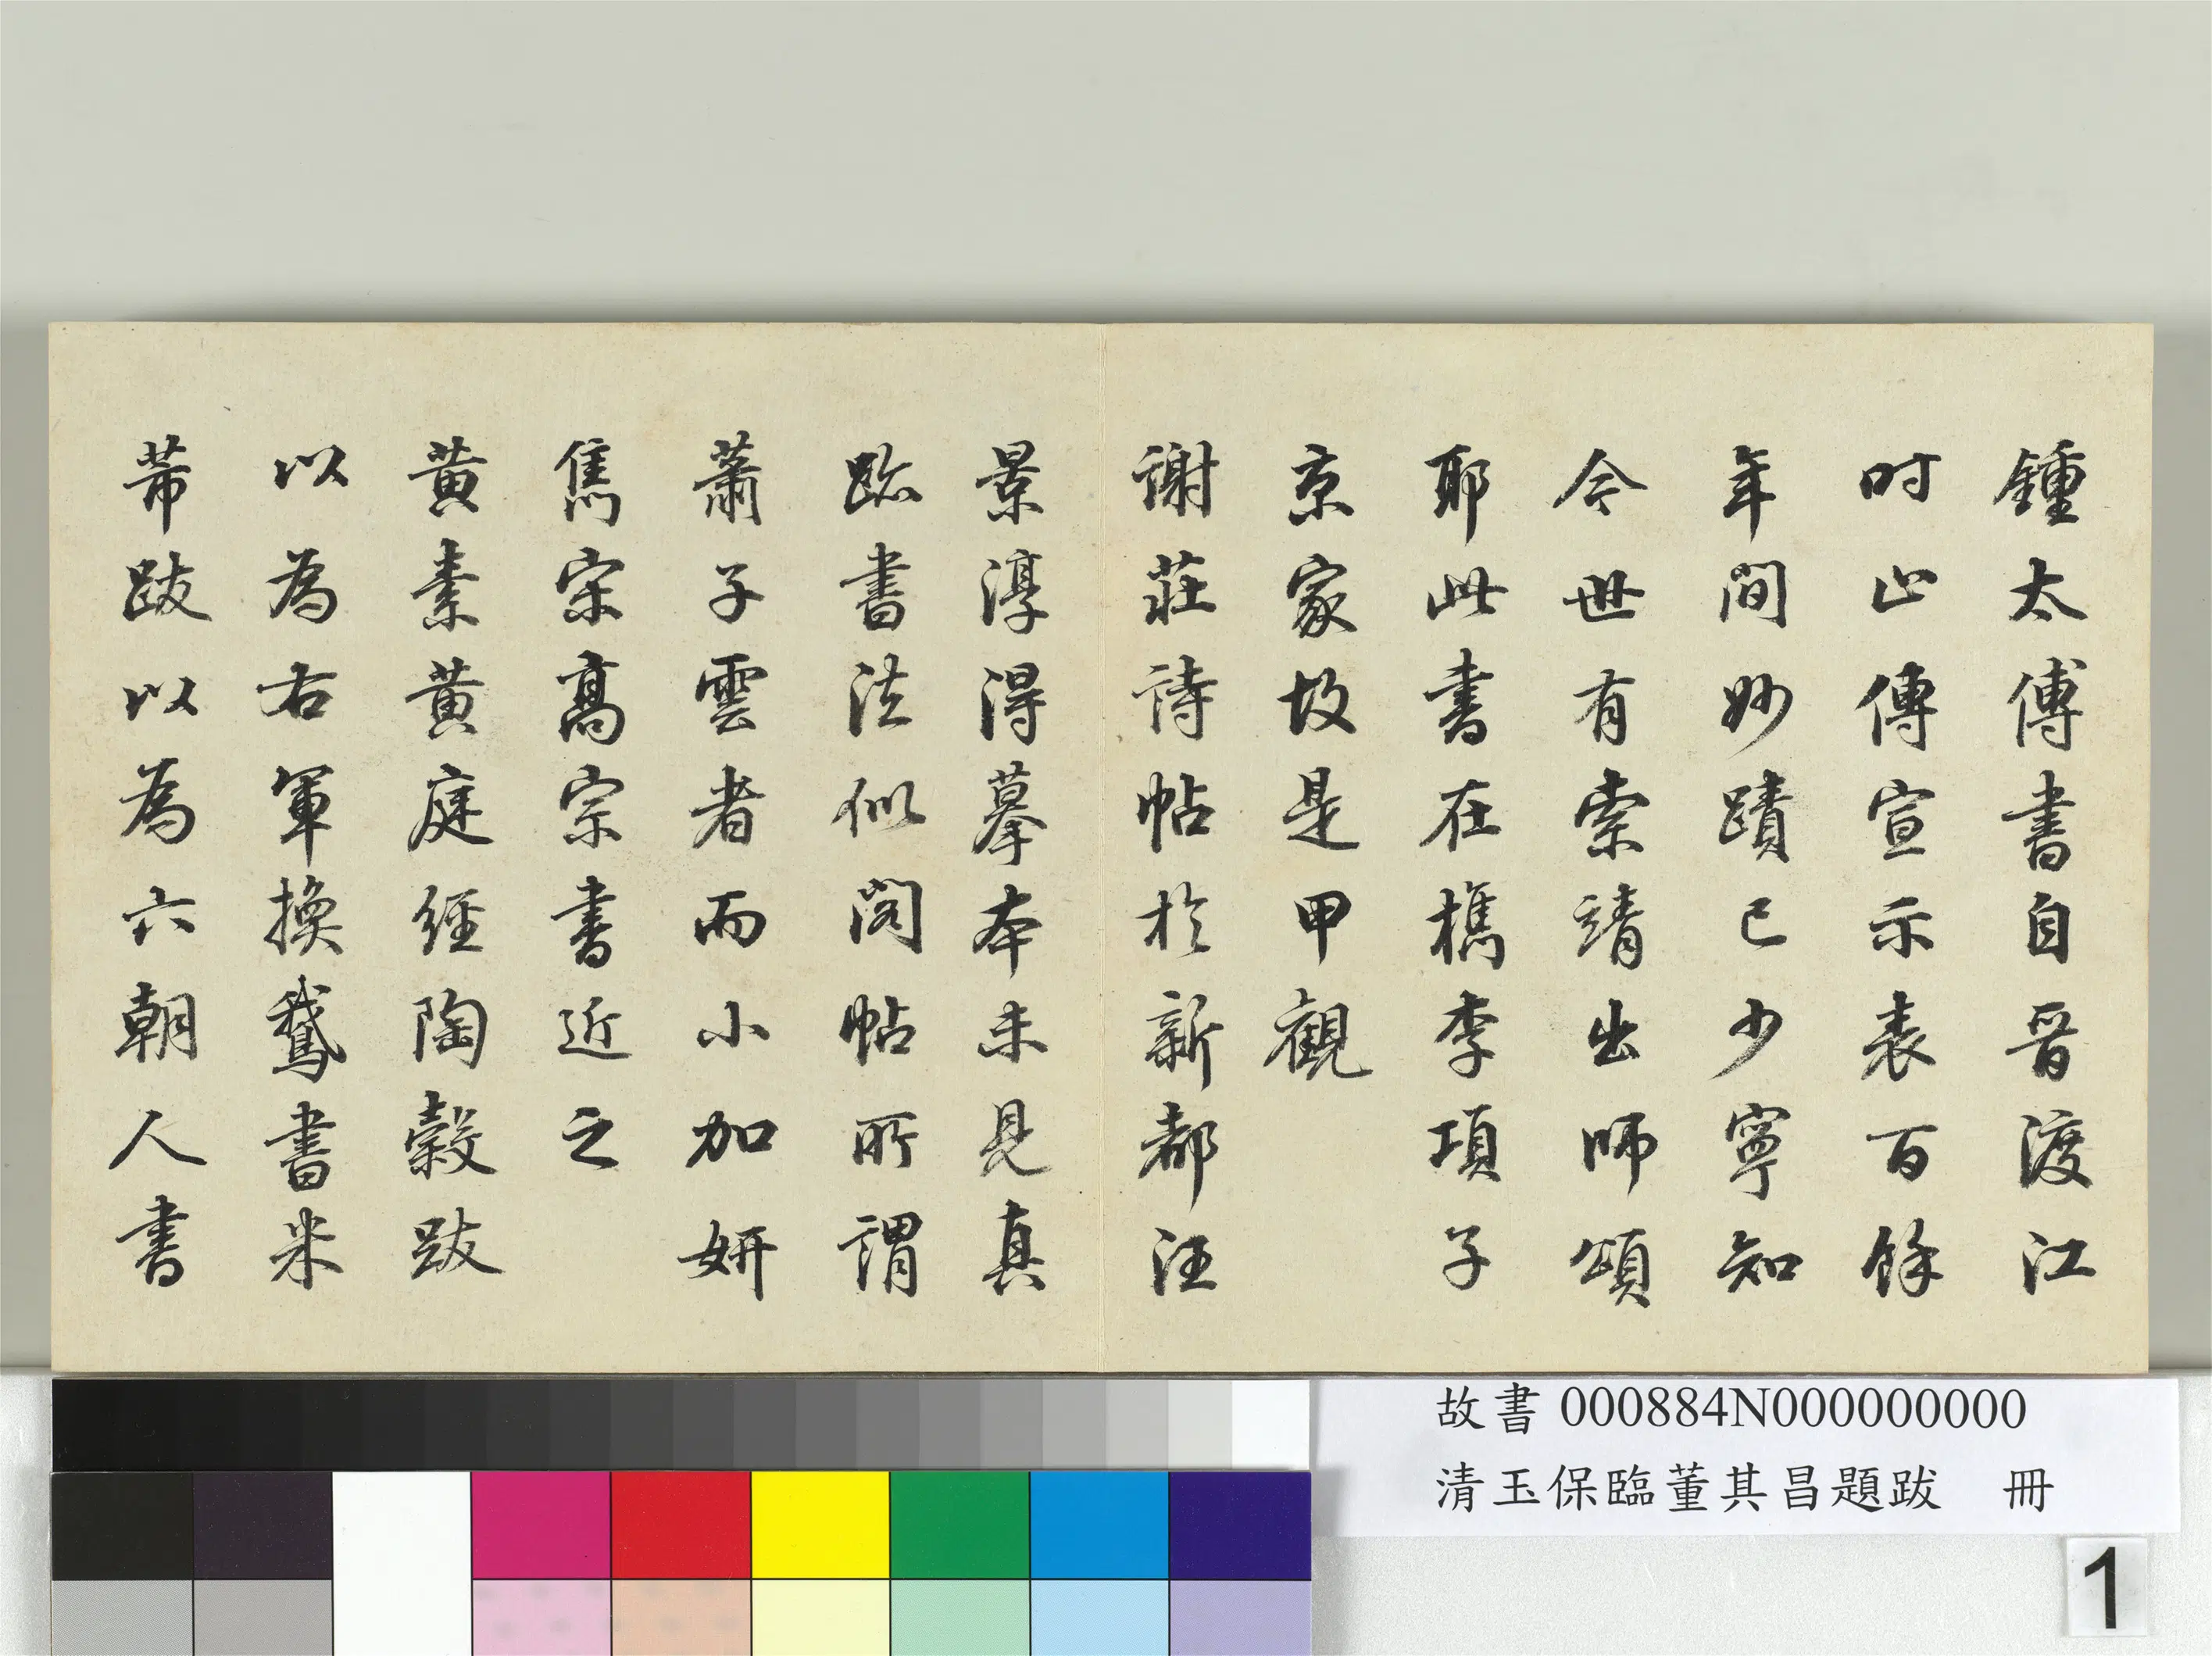 鍾太傅書自晉渡江
时止傳宣示表百餘
年間妙蹟已少寧知
今世有索靖出師頌
耶此書在檇李項子
京家故是甲觀
謝莊詩帖於新都汪
景淳得摹本未見真
跡書法似閣帖所謂
蕭子雲者而小加妍
雋宋高宗書近之
黃素黃庭經陶穀跋
以為右軍換鵞書米
芾跋以為六朝人書
故書 000884N000000000
清玉保臨董其昌題跋 冊
1